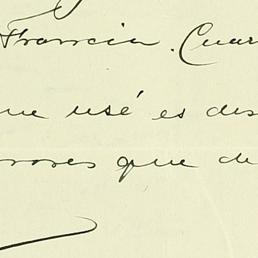 Francia. Cuar
ue usé es des
rores que de